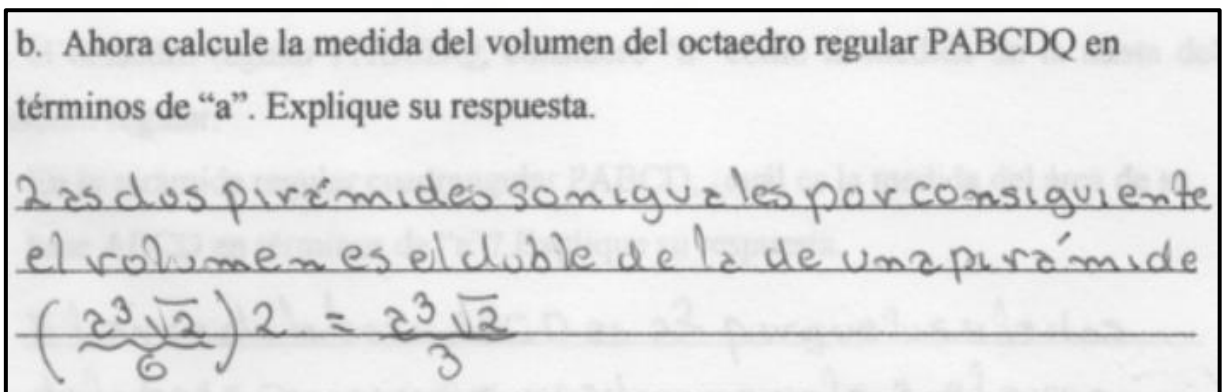 b. Ahora calcule la medida del volumen del octaedro regular PABCDQ en
términos de “a”. Explique su respuesta.
Las dos pirámides son iguales por consiguiente
el volumen es el doble de la de una pirámide
(a³√2/6)2 = a³√2/3